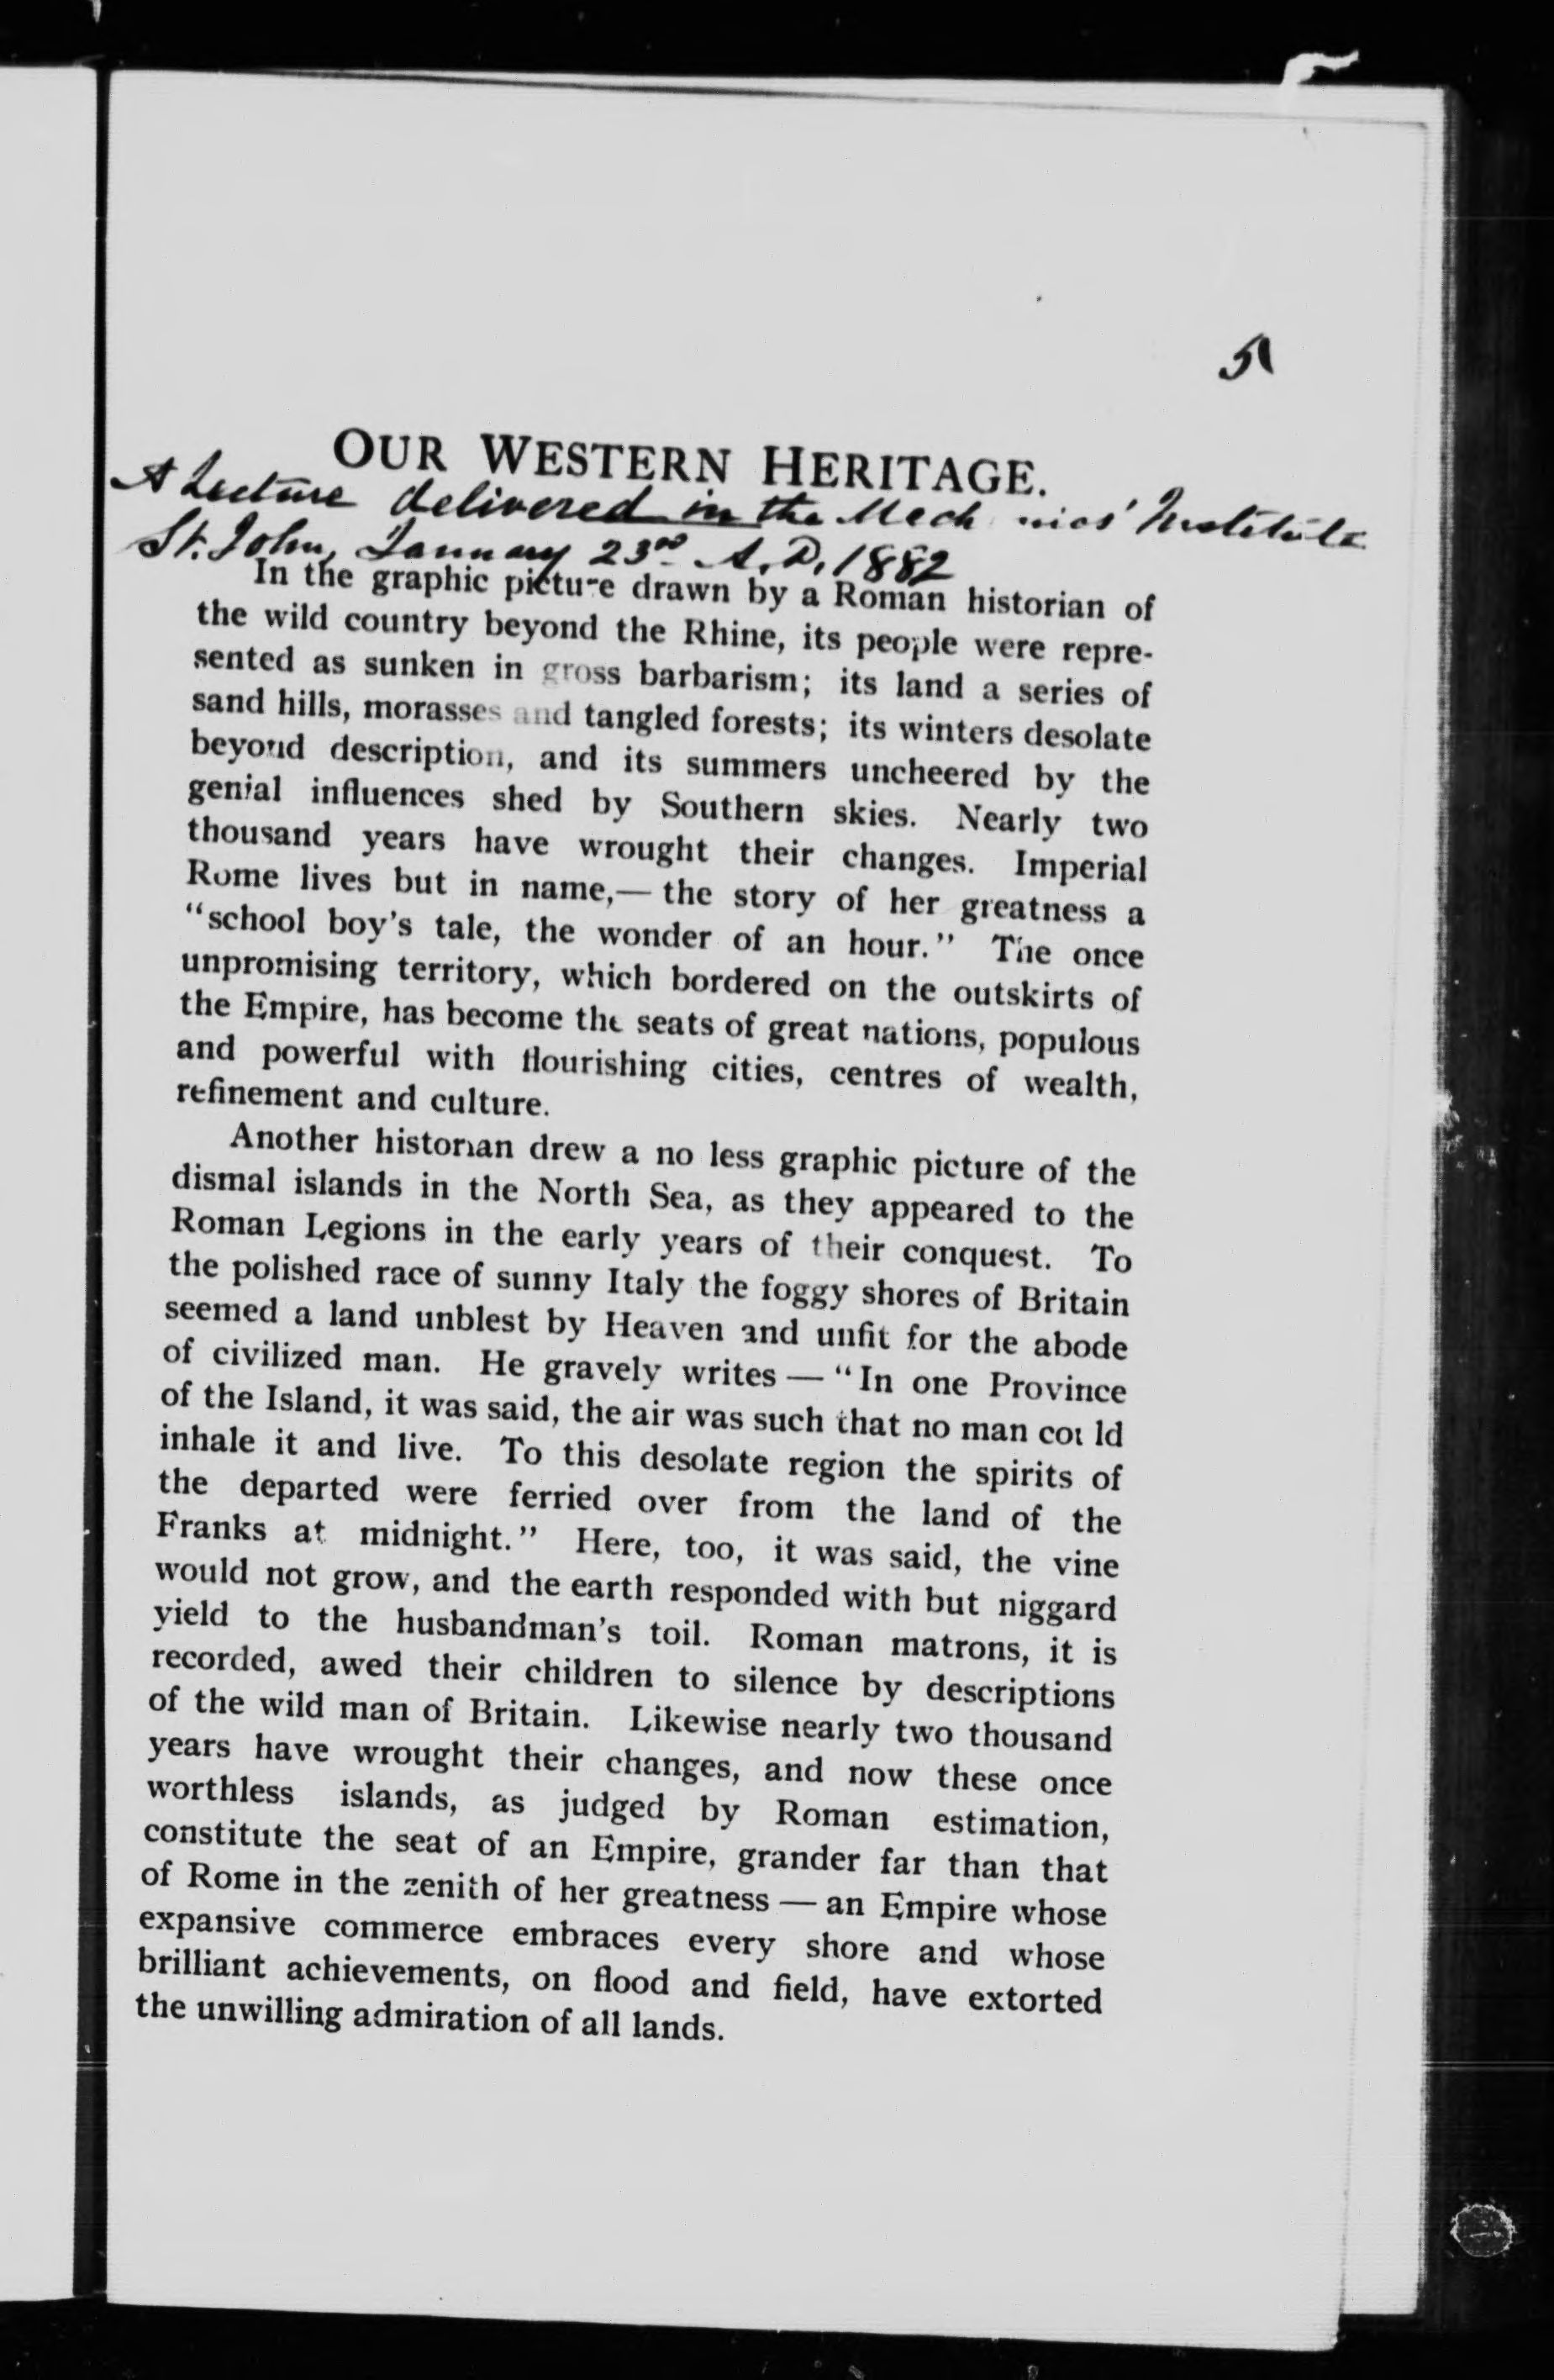 5
OUR WESTERN HERITAGE.
A Lecture delivered in the Mechanics' Institute
St. John, January 23rd A.D. 1882
In the graphic picture drawn by a Roman historian of
the wild country beyond the Rhine, its people were repre-
sented as sunken in gross barbarism; its land a series of
sand hills, morasses and tangled forests; its winters desolate
beyond description, and its summers uncheered by the
genial influences shed by Southern skies. Nearly two
thousand years have wrought their changes. Imperial
Rome lives but in name,— the story of her greatness a
"school boy's tale, the wonder of an hour." The once
unpromising territory, which bordered on the outskirts of
the Empire, has become the seats of great nations, populous
and powerful with flourishing cities, centres of wealth,
refinement and culture.
Another historian drew a no less graphic picture of the
dismal islands in the North Sea, as they appeared to the
Roman Legions in the early years of their conquest. To
the polished race of sunny Italy the foggy shores of Britain
seemed a land unblest by Heaven and unfit for the abode
of civilized man. He gravely writes — "In one Province
of the Island, it was said, the air was such that no man could
inhale it and live. To this desolate region the spirits of
the departed were ferried over from the land of the
Franks at midnight." Here, too, it was said, the vine
would not grow, and the earth responded with but niggard
yield to the husbandman's toil. Roman matrons, it is
recorded, awed their children to silence by descriptions
of the wild man of Britain. Likewise nearly two thousand
years have wrought their changes, and now these once
worthless islands, as judged by Roman estimation,
constitute the seat of an Empire, grander far than that
of Rome in the zenith of her greatness — an Empire whose
expansive commerce embraces every shore and whose
brilliant achievements, on flood and field, have extorted
the unwilling admiration of all lands.